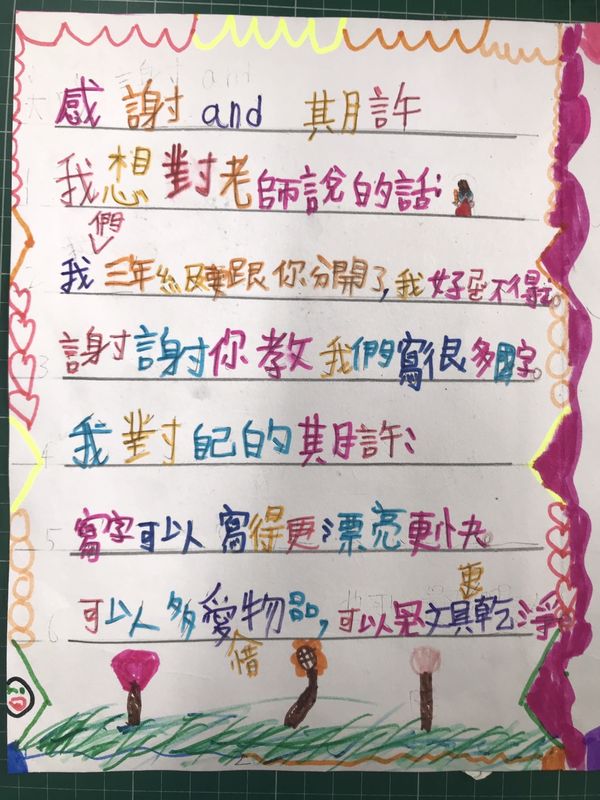 感謝 and 期許
我想對老師說的話:
我們三年級要跟你分開了,我好不得。
謝謝你教我們寫很多國字。
我對自己的期許:
寫字可以寫得更漂亮更快
可以多愛惜物品,可以文具乾淨